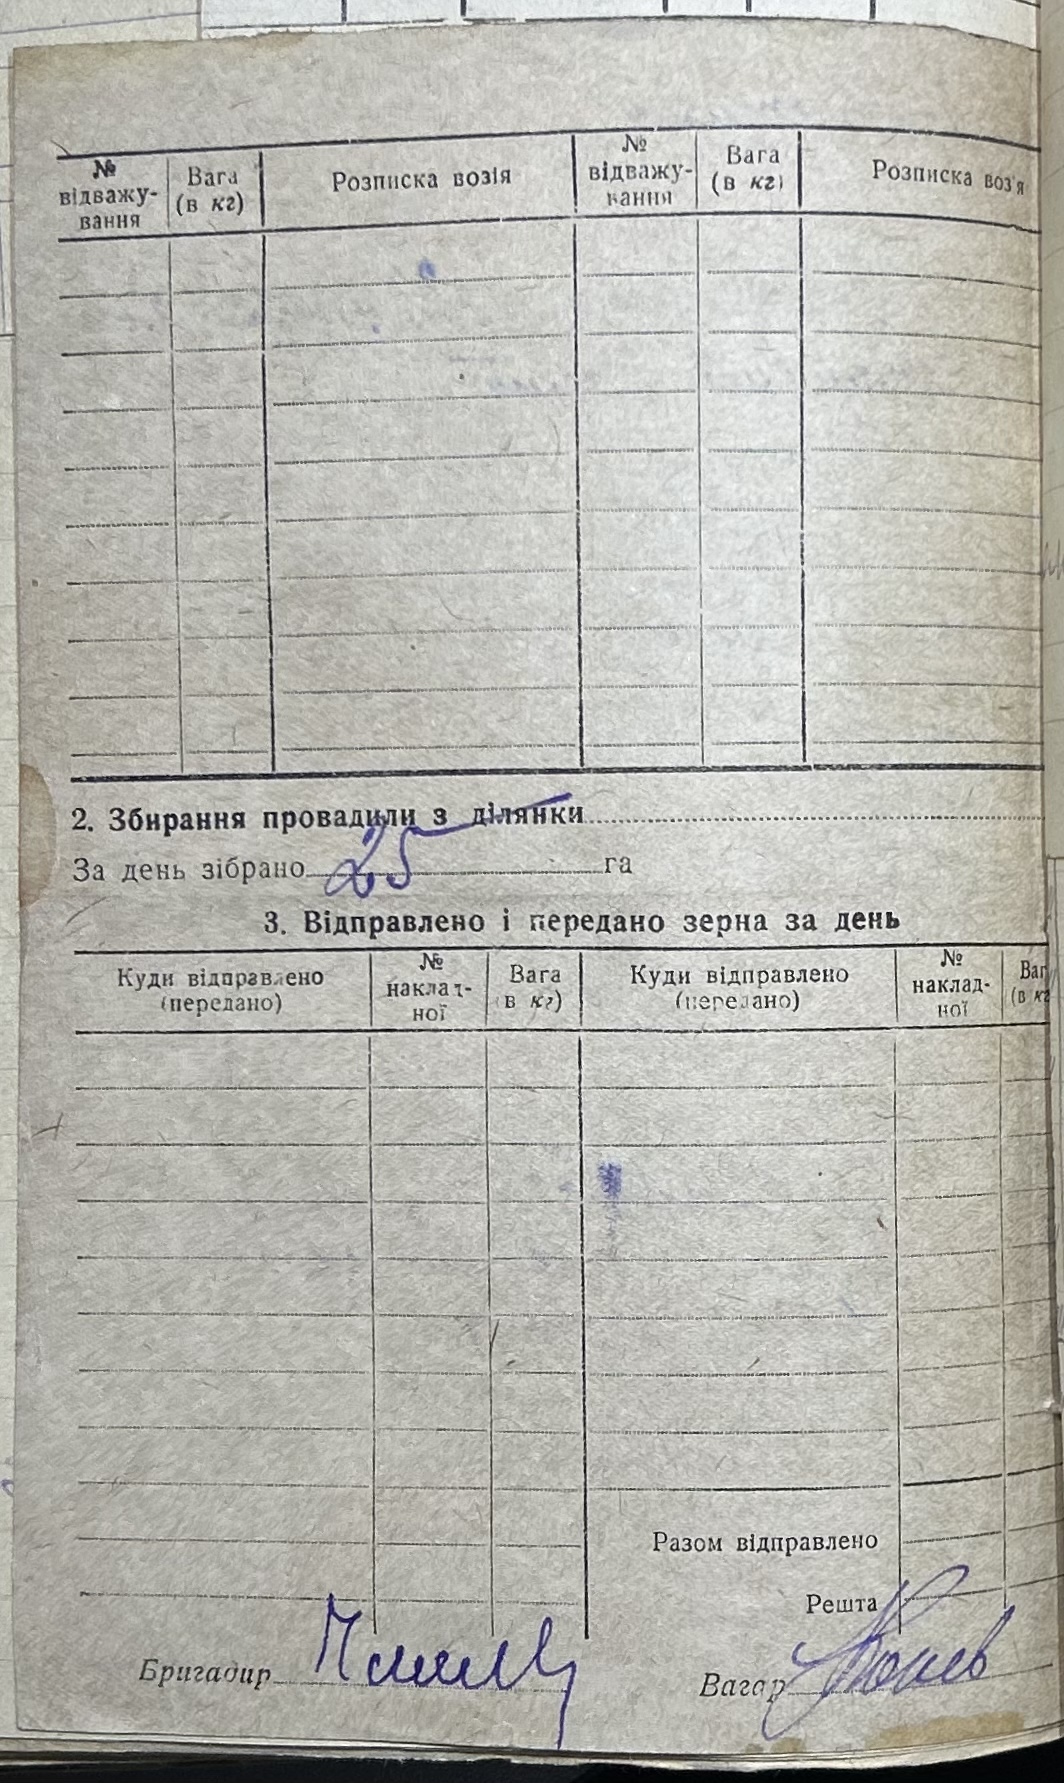 № відважу- вання Вага (в кг) Розписка возія № відважу- вання Вага (в кг) Розписка воз'я
2. Збирання провадили з ділянки
За день зібрано 25 га
3. Відправлено і передано зерна за день
Куди відправлено (передано) № наклад- ної Вага (в кг) Куди відправлено (передано) № наклад- ної Ваг (в кг
Разом відправлено
Решта
Бригадир Вагар